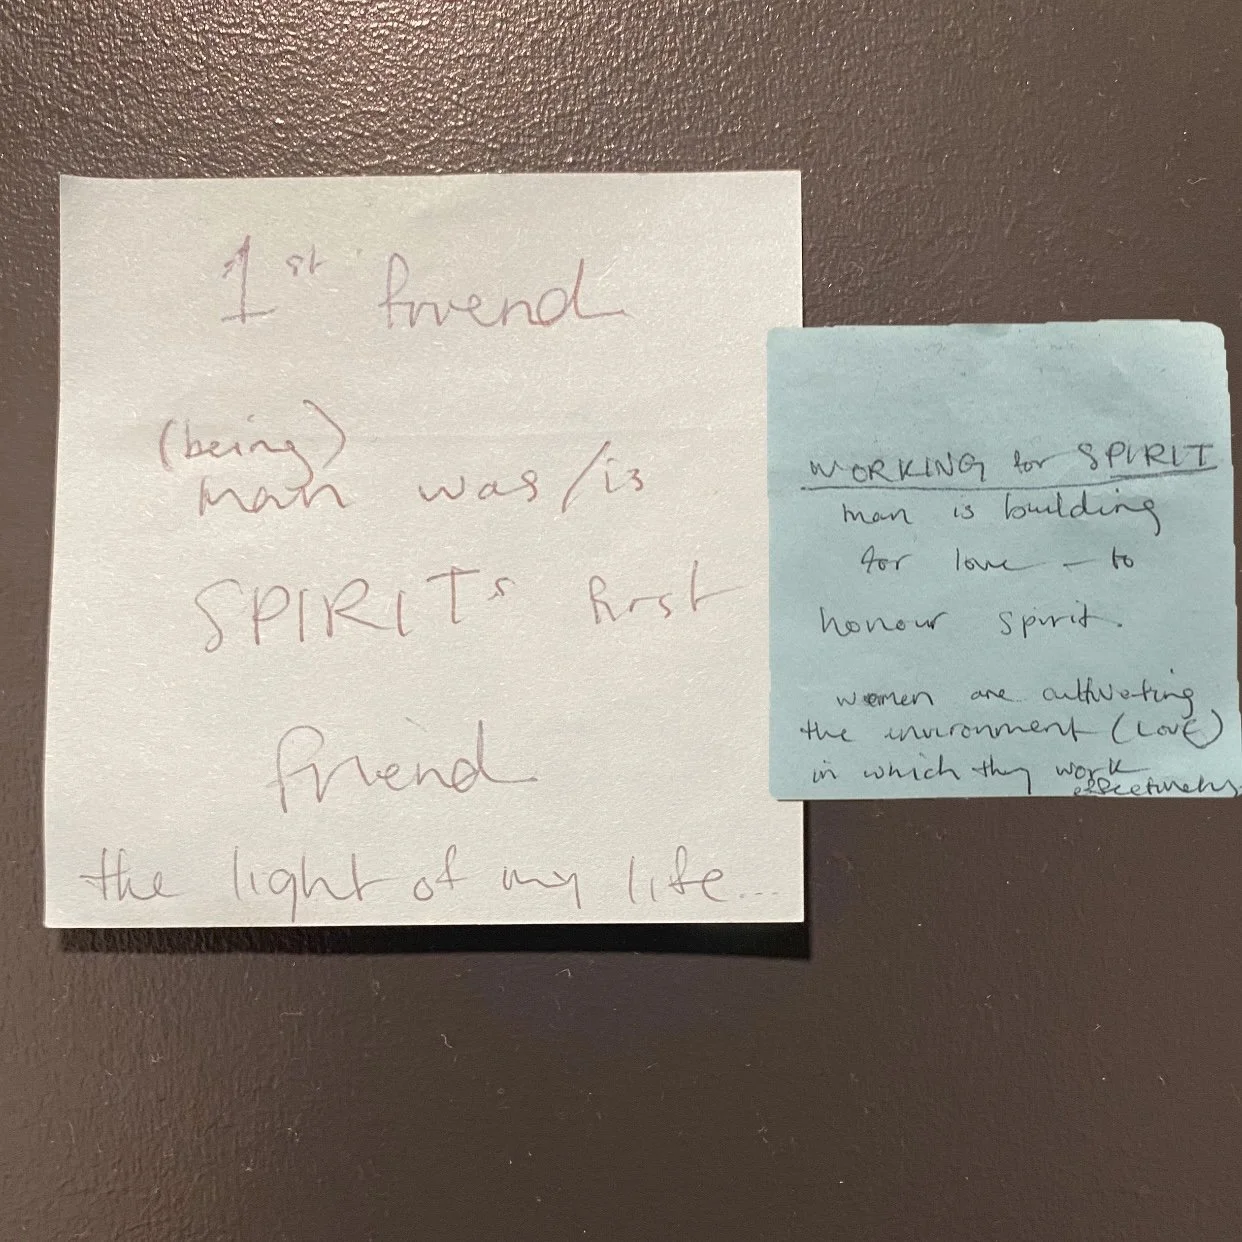 1st friend
(being)
man was/is
SPIRITs first
friend
the light of my life...
WORKING for SPIRIT
man is building
for love - to
honour spirit.
women are cultivating
the environment (LOVE)
in which they work
effectively